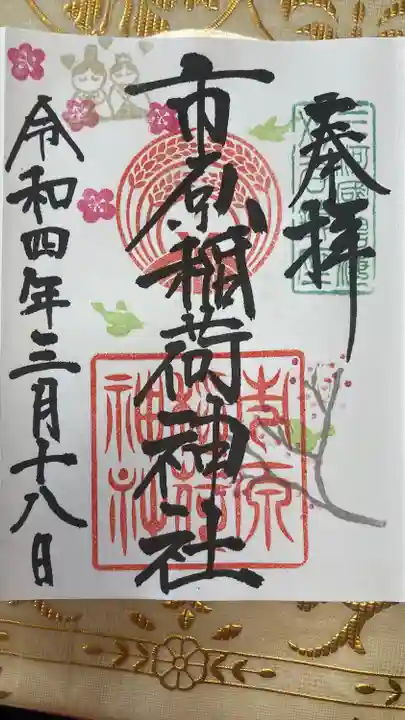 奉拝
市原稲荷神社
令和四年三月十八日
市原
稲荷
神社